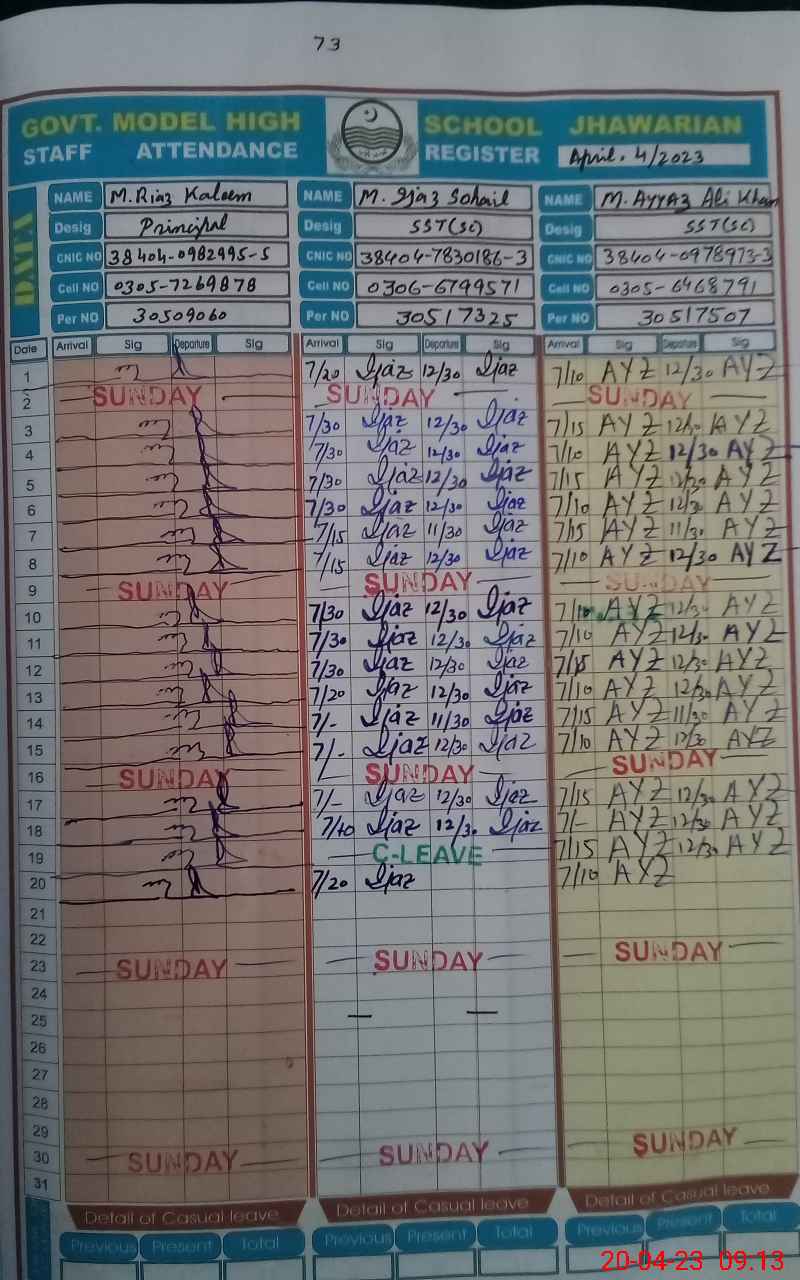 73
GOVT. MODEL HIGH SCHOOL JHAWARIAN
STAFF ATTENDANCE REGISTER April. 4/2023
DATA
NAME M.Riaz Kaleem NAME M. Ijaz Sohail NAME M. AYYAZ Ali Khan
Desig Principal Desig SST(SC) Desig SST(SC)
CNIC NO 38404-0982995-5 CNIC NO 38404-7830186-3 CNIC NO 38404-0978973-3
Cell NO 0305-7269878 Cell NO 0306-6799571 Cell NO 0305-6468791
Per NO 30509060 Per NO 30517325 Per NO 30517507
Date Arrival Sig Departure Sig Arrival Sig Departure Sig Arrival Sig Departure Sig
1 7/20 Ijaz 12/30 Ijaz 7/10 AYZ 12/30 AYZ
2 SUNDAY SUNDAY SUNDAY
3 7/30 Ijaz 12/30 Ijaz 7/15 AYZ 12/30 AYZ
4 7/30 Ijaz 12/30 Ijaz 7/10 AYZ 12/30 AYZ
5 7/30 Ijaz 12/30 Ijaz 7/15 AYZ 12/30 AYZ
6 7/30 Ijaz 12/30 Ijaz 7/10 AYZ 12/30 AYZ
7 7/15 Ijaz 11/30 Ijaz 7/15 AYZ 11/30 AYZ
8 7/15 Ijaz 12/30 Ijaz 7/10 AYZ 12/30 AYZ
9 SUNDAY SUNDAY SUNDAY
10 7/30 Ijaz 12/30 Ijaz 7/10 AYZ 12/30 AYZ
11 7/30 Ijaz 12/30 Ijaz 7/10 AYZ 12/30 AYZ
12 7/30 Ijaz 12/30 Ijaz 7/15 AYZ 12/30 AYZ
13 7/20 Ijaz 12/30 Ijaz 7/10 AYZ 12/30 AYZ
14 7/- Ijaz 11/30 Ijaz 7/15 AYZ 11/30 AYZ
15 7/- Ijaz 12/30 Ijaz 7/10 AYZ 12/30 AYZ
16 SUNDAY SUNDAY SUNDAY
17 7/- Ijaz 12/30 Ijaz 7/15 AYZ 12/30 AYZ
18 7/10 Ijaz 12/30 Ijaz 7/- AYZ 12/30 AYZ
19 C-LEAVE 7/15 AYZ 12/30 AYZ
20 7/20 Ijaz 7/10 AYZ
21
22
23 SUNDAY SUNDAY SUNDAY
24
25
26
27
28
29
30 SUNDAY SUNDAY SUNDAY
31
Detail of Casual leave Detail of Casual leave Detail of Casual leave
Previous Present Total Previous Present Total Previous Present Total
20-04-23 09.13